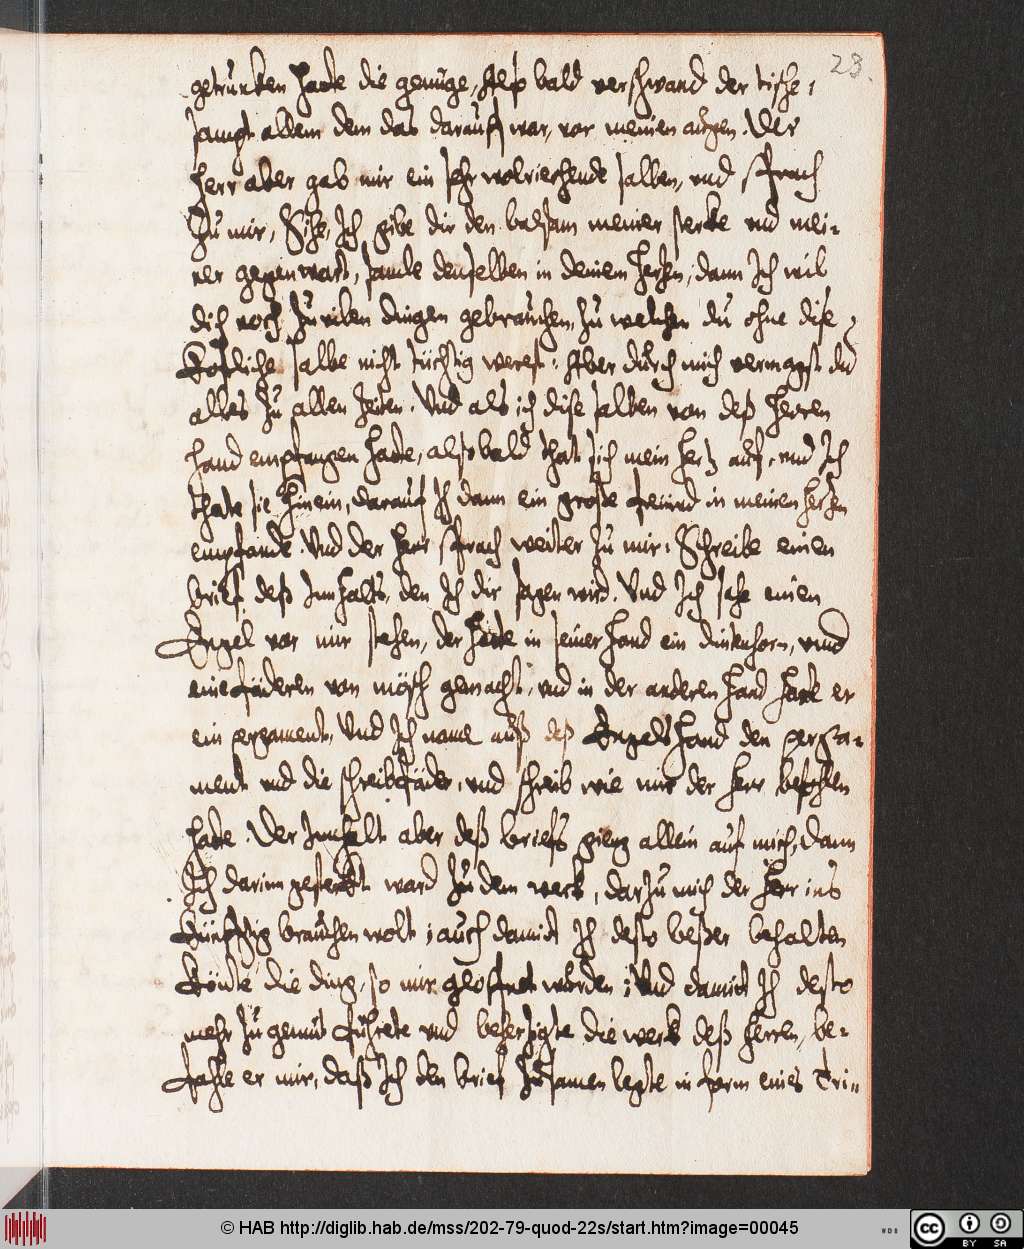 23.
getruncken hatte die genüge, Also bald verschwand der tische,
sampt allem dem das darauff war, vor meinen augen. Der
Herr aber gab mir ein sehr wolriechende salben, und sprach
zu mir, Sihe, Ich gibe dir den balsam meiner sterke und mei-
ner gegenwart, samle denselben in deinem Hertzen, dann Ich wil
dich noch zu vilen dingen gebrauchen, zu welchen du ohne dise
Köstliche salbe nicht tüchtig werest. Aber durch mich vermagst du
alles zu allen zeiten. Und als ich dise salben von deß Herren
hand empfangen hatte, also bald that sich mein hertz auf, und Ich
thate sie hinein, darauf Ich dann ein große freüd in meinen hertzen
empfande. Und der Herr sprach weiter zu mir, Schreibe einen
brief deß Innhalts, den Ich dir sagen wird. Und Ich sahe einen
Engel vor mir stehen, der hatte in seiner hand ein dintenhorn, und
eine fäderen von mösch gemacht, und in der anderen hand hatte er
ein pergament, Und Ich name auß deß Engels hand den perga-
ment und die schreibfäder, und schreib wie mir der Herr befohlen
hatte. Der Innhalt aber deß briefs gieng allein auf mich, dann
Ich darinn gesterkt ward zu dem werk, darzu mich der Herr ins
Künfftig brauchen wolt; auch damit Ich desto beßer behalten
Könte die ding, so mir geoffnet wurden; Und damit Ich desto
mehr zu gemüt führete und beherzigte die werk deß Herren, be-
fahle er mir, daß Ich den brief zusamen legte in form eines Tri-
© HAB http://diglib.hab.de/mss/202-79-quod-22s/start.htm?image=00045
WDB
CC BY SA